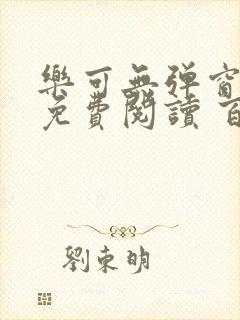 樂可無彈窗
免費閱讀 百
劉東明